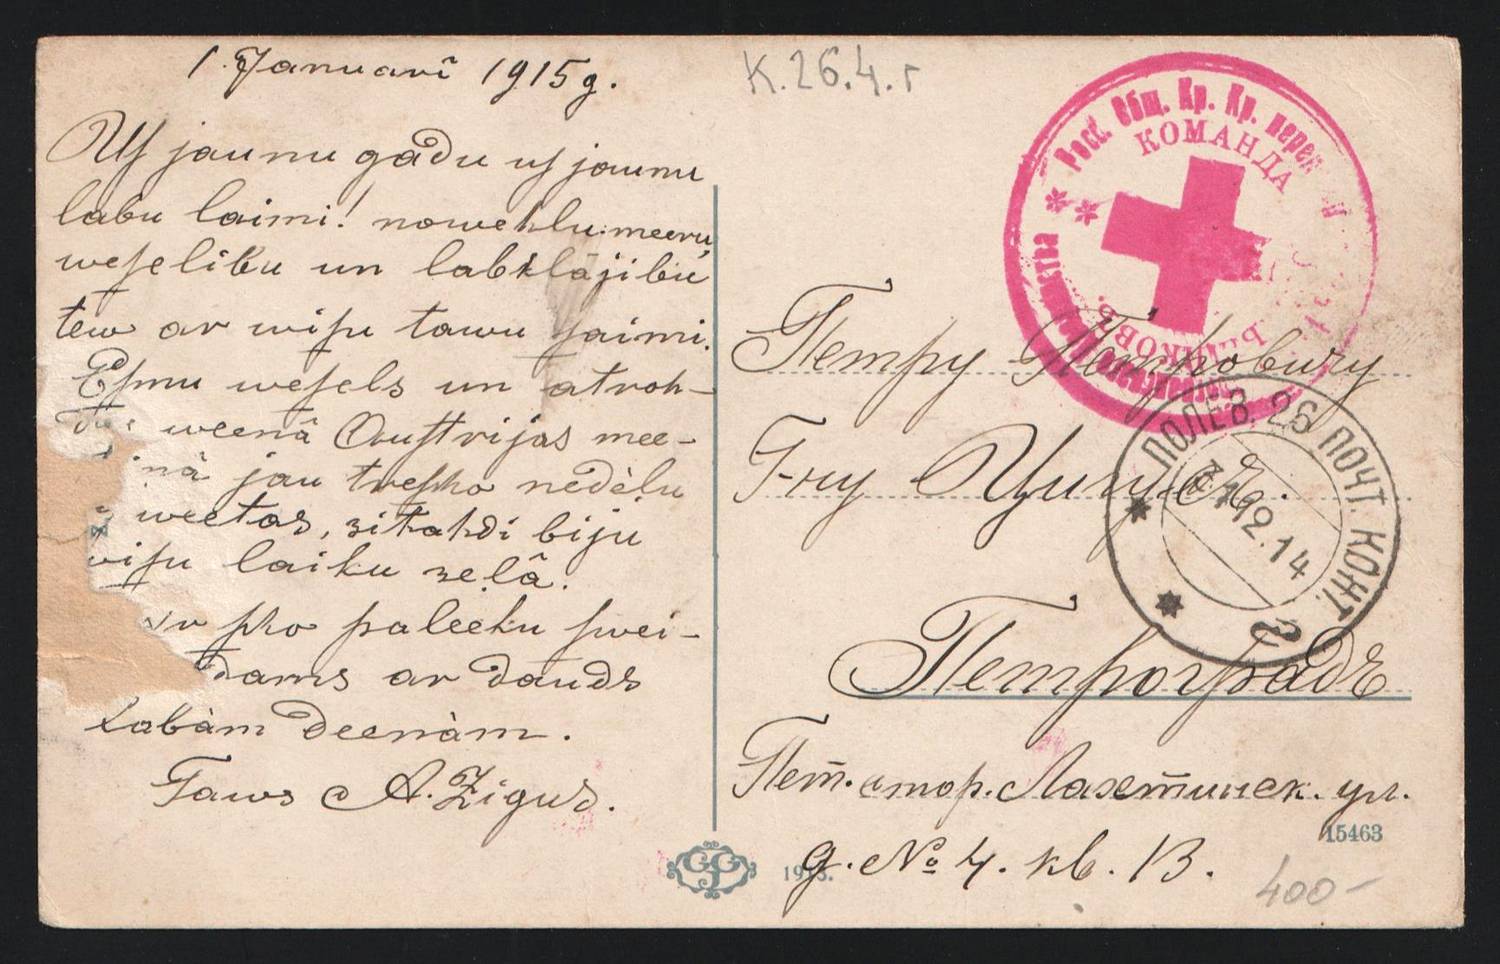 1. Januarî 1915g.
Uſ jaunu gadu uſ jaunu
labu laimi! nowehlu meeru,
weſelibu un labklājibu
tew ar wiſu tawu ſaimi.
Eſmu weſels un atroh-
weenâ Ouſtrijas mee-
jau treſho nedèļu
weetas, zitahdi biju
wiſu laiku zeļâ.
pho paleeku ſwei-
dams ar daudz
Labàm deenàm.
Taws A. Zigus.
К. 26.4. г
Росс. Общ. Кр. Кр.
КОМАНДА
Петру Петровичу
Г-ну Цигусъ.
Петроградъ
Пет. стор. Лахтинск. ул.
д. № 4. кв. 13.
ПОЛЕВ. 26 ПОЧТ. КОНТ.
31.12.14
2
15463
400-